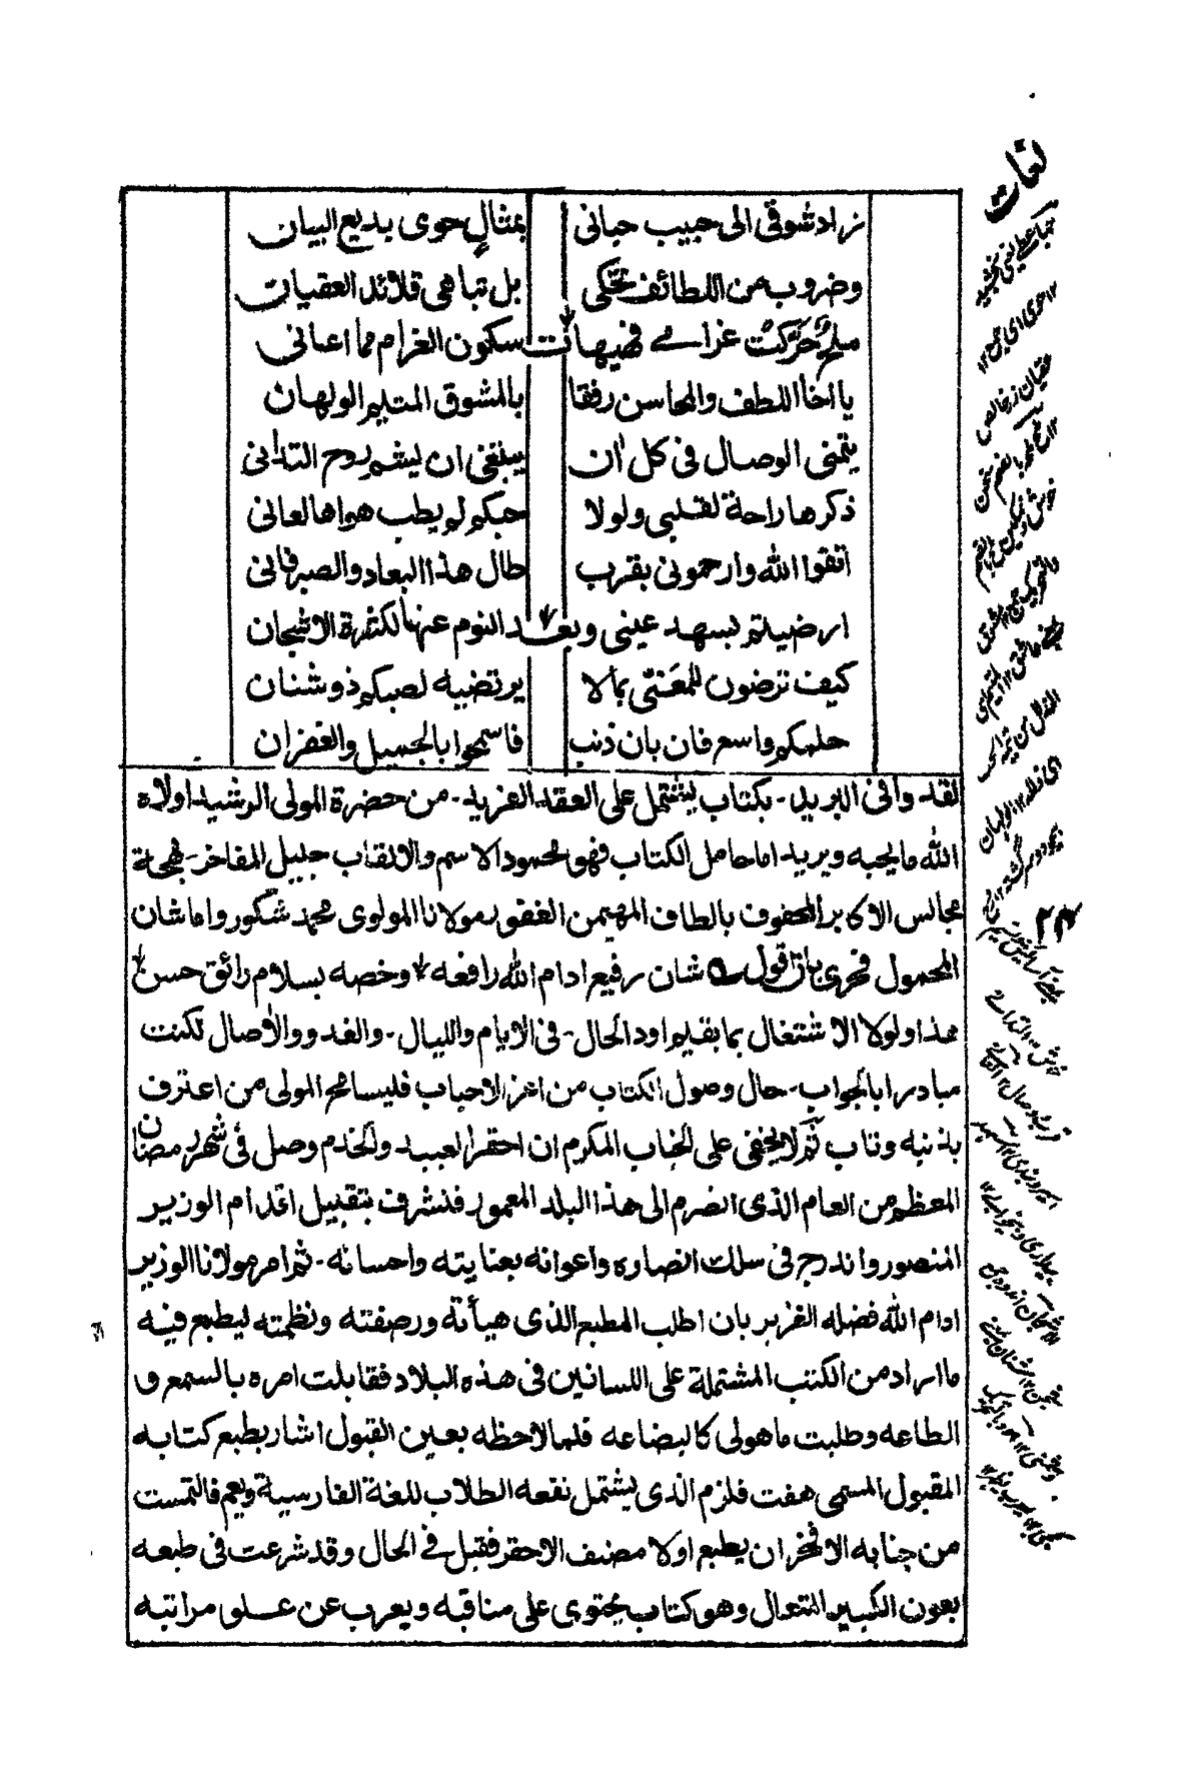 زاد شوقی الی حبیب حبانی بمثالٍ حوی بدیع البیان
وضروب من اللطائف تحکی بل تباهی قلائد العقیان
ملحٌ حرّکت غرامے فهیهات سکون الغرام مما اعانی
یا اخا اللطف والمحاسن رفقا بالمشوق المتیم الولهان
یتمنی الوصال فی کل اٰن یبتغی ان یشم روح التدانی
ذکرها راحة لقلبی ولولا حبکم لم یطب هواها لعانی
اتقوا الله وارحمونی بقرب طال هذا البعاد والصبر فانی
ارضیتم بسهد عینی وبعد النوم عنها لکثرة الاشجان
کیف ترضون للمعَنّی بمالا یرتضیه لصبکم ذو شنان
حلمکم واسع فان بان ذنب فاسمحوا بالجمیل والغفران
لقد وافی البرید۔ بکتاب یشتمل علی العقد الفرید۔ من حضرة المولی الرشید اولاه
الله ما یحبه ویرید اما حامل الکتاب فهو المحمود الاسم والالقاب جلیل المفاخر۔ بهجة
مجالس الاکابر المحفوف بالطاف المهیمن الغفور مولانا المولوی محمد شکور واما شان
المحمول فحری بان اقول شان رفیع ادام الله رافعه وخصه بسلام رائق حسن
هذا ولولا الاشتغال بما یقیم اود الحال۔ فی الایام واللیال۔ والغدو والاٰصال لکنت
مبادرا بالجواب۔ حال وصول الکتاب من اعز الاحباب فلیسامح المولی من اعترف
بذنبه وتاب ثم لا یخفی علی الجناب المکرم ان احقر العبید والخدم وصل فی شهر رمضان
المعظم من العام الذی انصرم الی هذا البلد المعمور فتشرف بتقبیل اقدام الوزیر
المنصور واندرج فی سلک انصاره واعوانه بعنایته واحسانه۔ ثم امر مولانا الوزیر
ادام الله فضله الغزیر بان اطلب المطبع الذی هیأته ورصفته ونظمته لیطبع فیه
ما اراد من الکتب المشتملة علی اللسانین فی هذه البلاد فقابلت امره بالسمع و
الطاعه وطلبت ما هو لی کالبضاعه فلما لاحظه بعین القبول اشار بطبع کتابه
المقبول المسمی هفت قلزم الذی یشتمل نفعه الطلاب للغة الفارسیة ویعم فالتمست
من جنابه الافخر ان یطبع اولا مصنف الاحقر فقبل فے الحال وقد شرعت فی طبعه
بعون الکبیر المتعال وهو کتاب یحتوی علی مناقبه ویعرب عن علو مراتبه
لغات